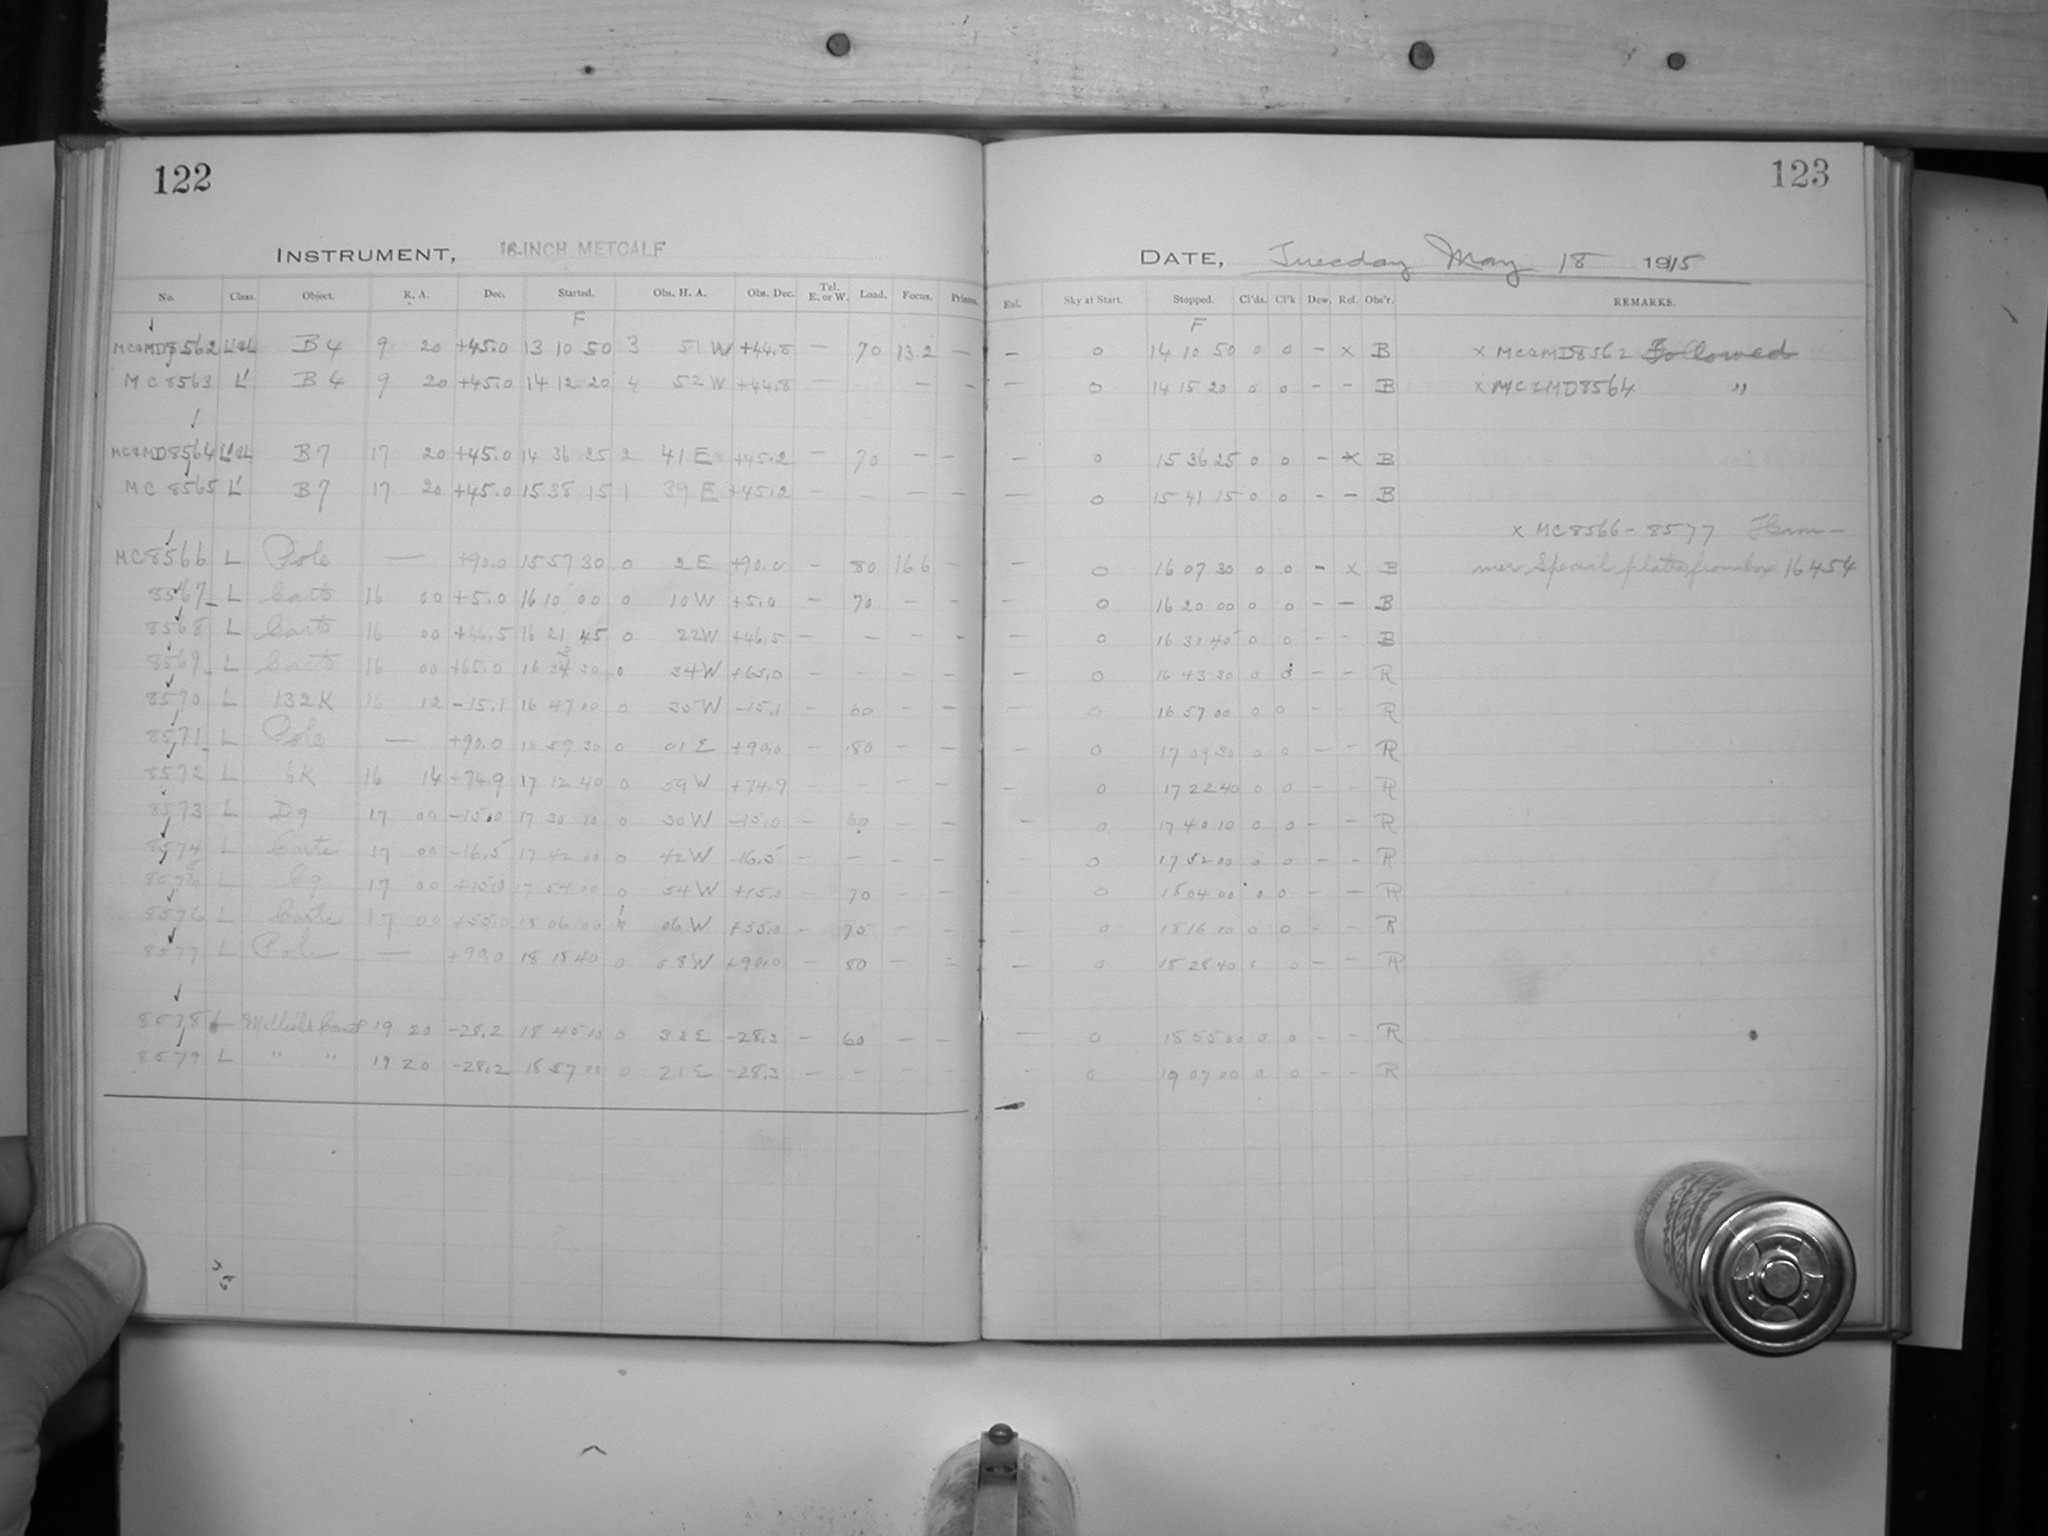 122
INSTRUMENT, 16-INCH METCALF
No. Class. Object. R. A. Dec. Started. Obs. H. A. Obs. Dec. Tel. E. or W. Load. Focus. Prisms.
F
MC&MD8562 L'&L B4 9 20 +45.0 13 10 50 3 51 W +44.8 — 70 13.2 —
MC 8563 L' B4 9 20 +45.0 14 12 20 4 52 W +44.8 — — —
MC&MD8564 L'&L B7 17 20 +45.0 14 36 25 2 41 E +45.2 — 70 — —
MC 8565 L' B7 17 20 +45.0 15 38 15 1 39 E +45.2 — — — —
MC8566 L Pole — +90.0 15 57 30 0 2 E +90.0 — 80 16.6 —
8567 L Carte 16 00 +5.0 16 10 00 0 10 W +5.0 — 70 — —
8568 L Carte 16 00 +46.5 16 21 45 0 22 W +46.5 — — — —
8569 L Carte 16 00 +65.0 16 33 30 0 34 W +65.0 — — — —
8570 L 132K 16 12 -15.1 16 47 00 0 35 W -15.1 — 60 — —
8571 L Pole — +90.0 16 59 30 0 01 E +90.0 — 80 — —
8572 L 6K 16 14 +74.9 17 12 40 0 59 W +74.9 — — — —
8573 L D9 17 00 -15.0 17 30 10 0 30 W -15.0 — 60 — —
8574 L Carte 17 00 -16.5 17 42 00 0 42 W -16.5 — — — —
8575 L C9 17 00 +15.0 17 54 00 0 54 W +15.0 70 — —
8576 L Carte 17 00 +55.0 18 06 00 1 06 W +55.0 — 75 — —
8577 L Pole — +90.0 18 18 40 0 08 W +90.0 — 80 — —
8578 L Mellish's Comet 19 20 -28.2 18 45 00 0 33 E -28.3 — 60 — —
8579 L " " 19 20 -28.2 18 57 00 0 21 E -28.3 — — — —
123
DATE, Tuesday May 18 1915
Ent. Sky at Start. Stopped. Cl'ds. Cl'k Dew. Ref. Obs'r. REMARKS.
F
— 0 14 10 50 0 0 — x B x MC&MD8562 Followed
— 0 14 15 20 0 0 — — B x MC&MD8564 "
— 0 15 36 25 0 0 — x B
— 0 15 41 15 0 0 — — B
x MC8566-8577 Ham-
— 0 16 07 30 0 0 — x B mer Special plates from box 16454
— 0 16 20 00 0 0 — — B
— 0 16 31 45 0 0 — — B
— 0 16 43 30 0 0 — — R
— 0 16 57 00 0 0 — — R
— 0 17 09 30 0 0 — — R
— 0 17 22 40 0 0 — — R
— 0 17 40 10 0 0 — — R
— 0 17 52 00 0 0 — — R
— 0 18 04 00 0 0 — — R
— 0 18 16 00 0 0 — — R
— 0 18 28 40 0 0 — — R
— 0 18 55 00 0 0 — — R
— 0 19 07 00 0 0 — — R